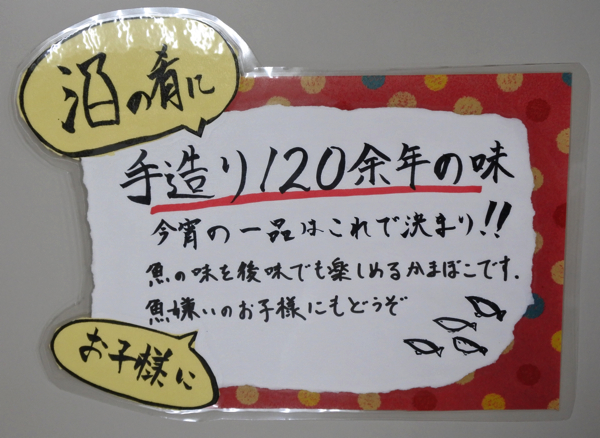 酒の肴に
手造り120余年の味
今宵の一品はこれで決まり!!
魚の味を後味でも楽しめるかまぼこです.
魚嫌いのお子様にもどうぞ
お子様に